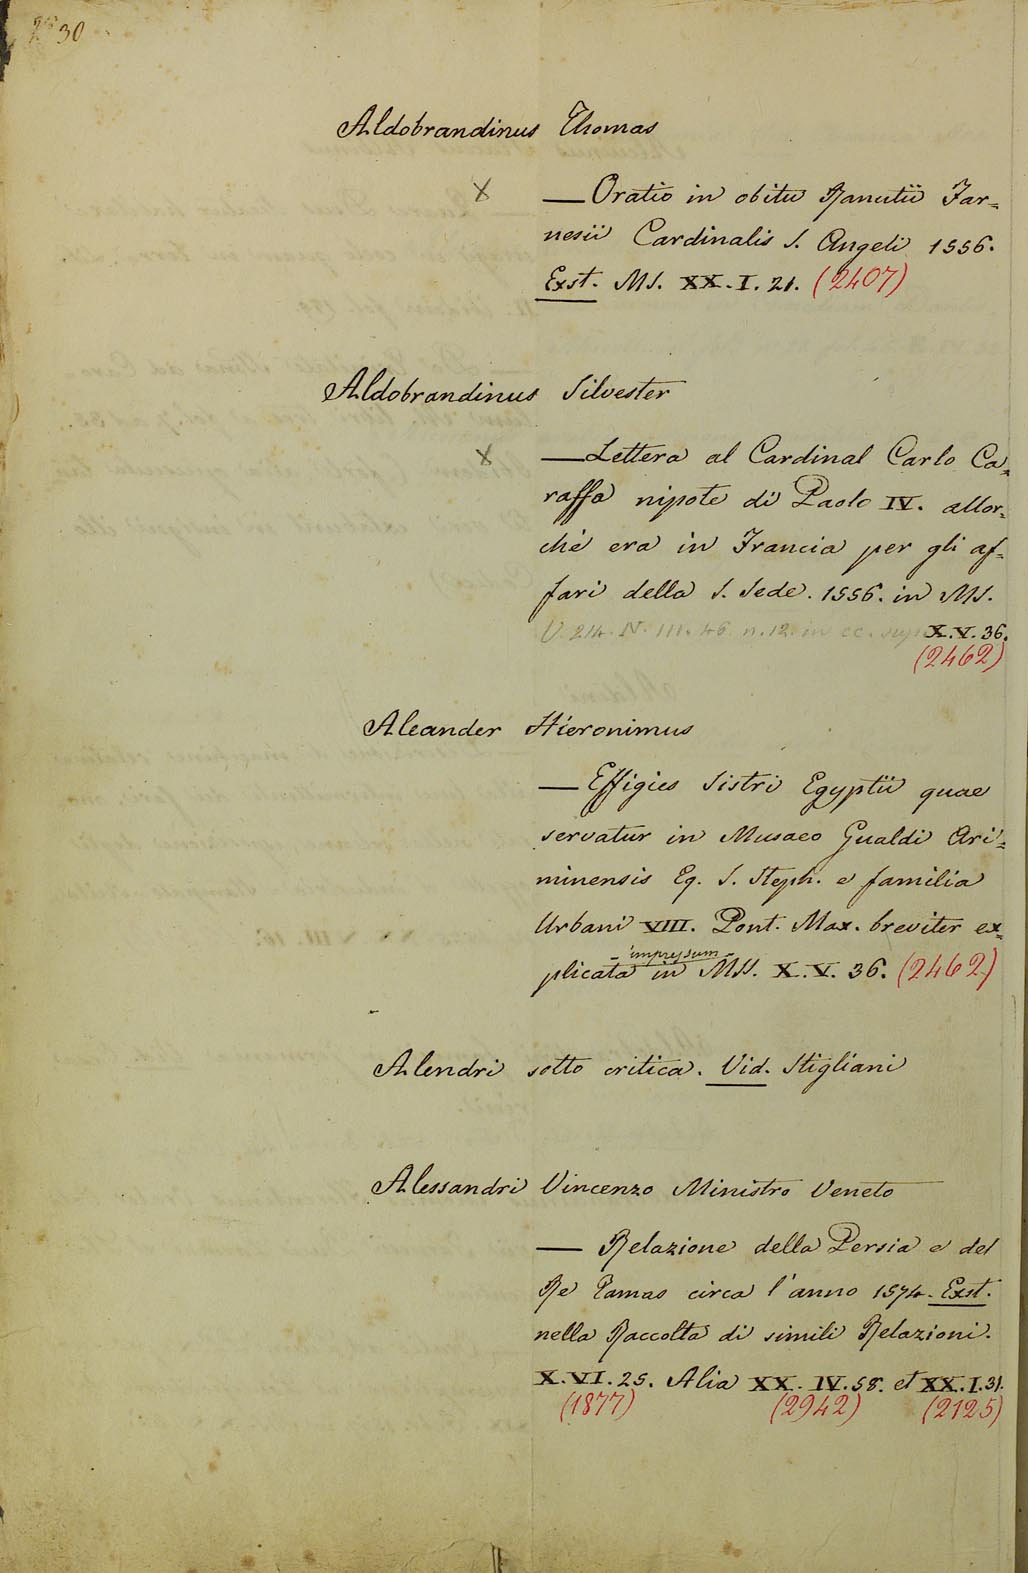 30
Aldobrandinus Thomas
X — Oratio in obitu Ranutii Far=
nesii Cardinalis S. Angeli 1556.
Exst. MS. XX. I. 21. (2407)
Aldobrandinus Silvester
X — Lettera al Cardinal Carlo Ca=
raffa nipote di Paolo IV. allor=
chè era in Francia per gli af=
fari della S. Sede. 1556. in MS.
U. 214. N. III. 46 n. 12. in X. V. 36.
(2462)
Aleander Hieronimus
— Effigies Sistri Egyptii quae
servatur in Musaeo Gualdi Ari=
minensis Eq. S. Steph. e familia
Urbani VIII. Pont. Max. breviter ex=
– impressum –
plicata in MSS. X. V. 36. (2462)
Alendri sotto critica. Vid. Stigliani
Alessandri Vincenzo Ministro Veneto
— Relazione della Persia e del
Re Tamas circa l'anno 1574. Exst.
nella Raccolta di simili Relazioni.
X. VI. 25. Alia XX. IV. 58. et XX. I. 31.
(1877) (2942) (2125)